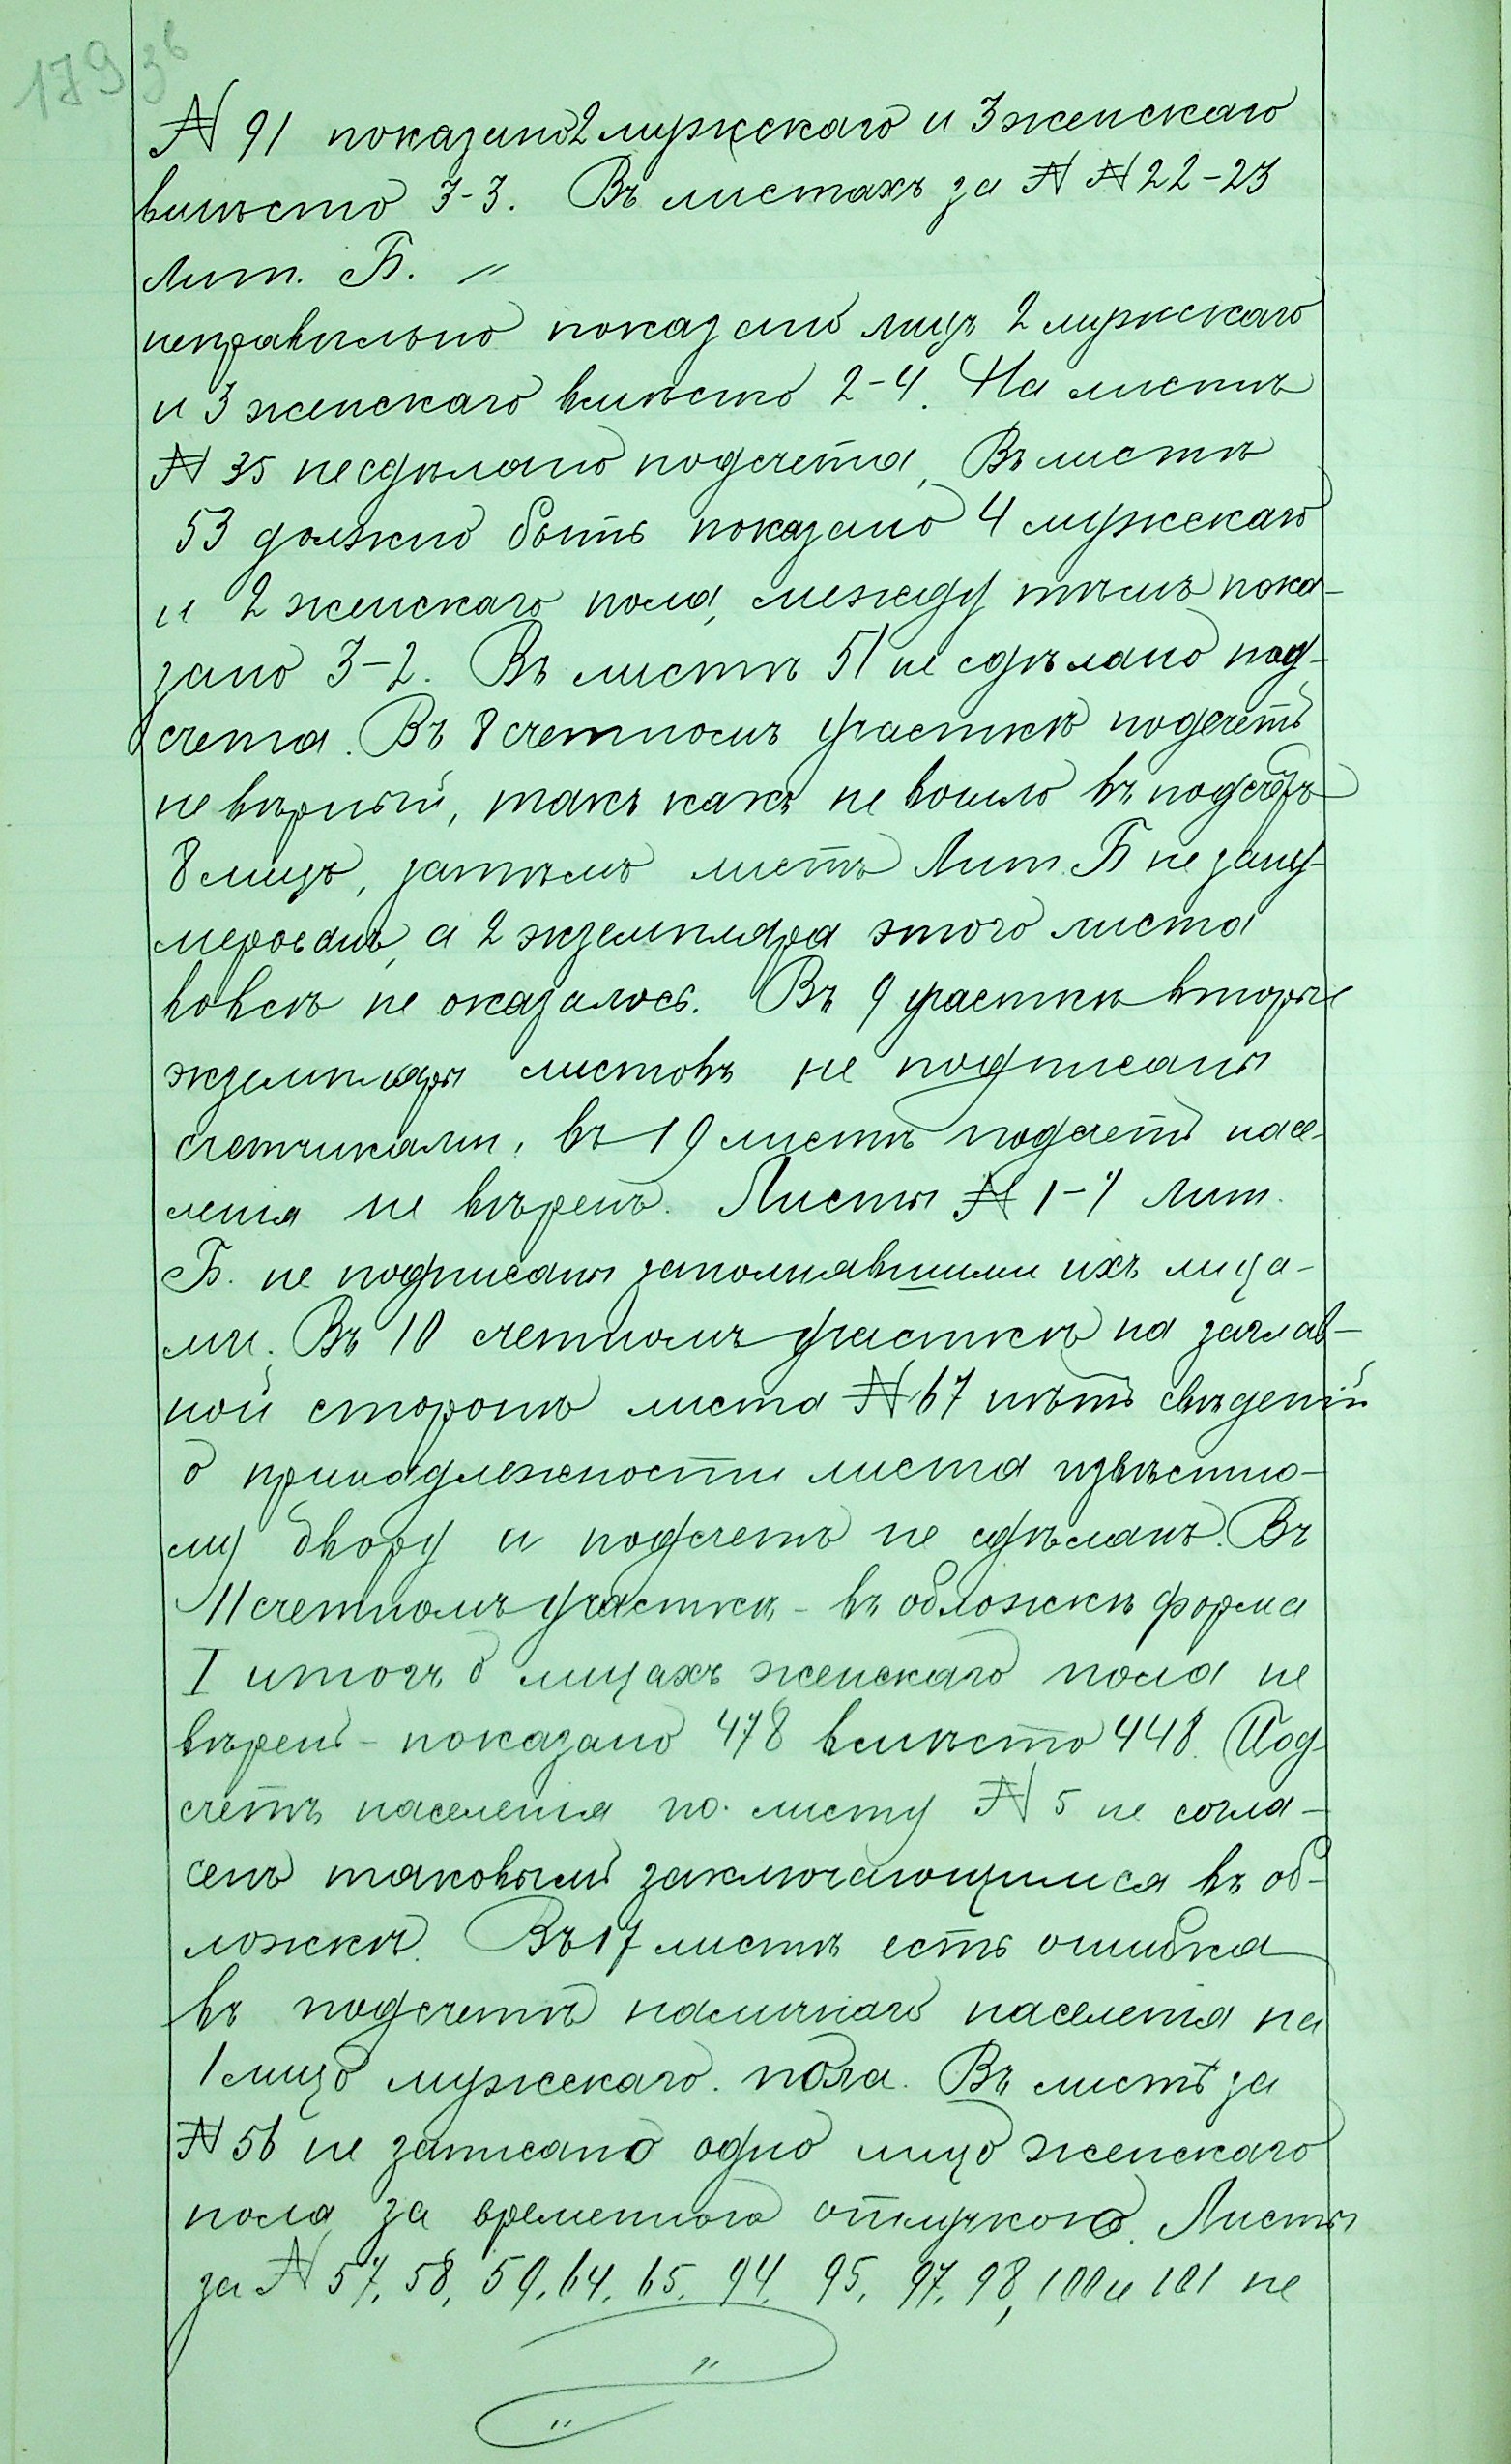 179 зв
№ 91 показано 2 мужскаго и 3 женскаго
вмѣсто 3-3. Въ листахъ за №№ 22-23
Лит. Б. "
неправильно показано лицъ 2 мужскаго
и 3 женскаго вмѣсто 2-4. На листѣ
№ 35 не сдѣлано подсчета, Въ листѣ
53 должно быть показано 4 мужскаго
и 2 женскаго пола, между тѣмъ пока-
зано 3-2. Въ листѣ 51 не сдѣлано под-
счета. Въ 8 счетномъ участкѣ подсчетъ
не вѣрный, такъ какъ не вошло въ подсчетъ
8 лицъ, затѣмъ листъ Лит. Б не зану-
мерованъ, а 2 экземпляра этого листа
вовсѣ не оказалось. Въ 9 участкѣ вторые
экземпляры листовъ не подписаны
счетчиками, въ 19 листѣ подсчетъ насе-
ленія не вѣренъ. Листы № 1-7 Лит.
Б. не подписаны заполнявшими ихъ лица-
ми. Въ 10 счетномъ участкѣ на заглав-
ной сторонѣ листа № 67 нѣтъ свѣденій
о принадлежности листа извѣстно-
му двору и подсчетъ не сдѣланъ. Въ
11 счетномъ участкѣ - въ обложкѣ форма
I итогъ о лицахъ женскаго пола не
вѣренъ - показано 478 вмѣсто 448. Под-
счетъ населенія по листу № 5 не согла-
сенъ таковымъ заключающимися въ об-
ложкѣ. Въ 17 листѣ есть ошибка
въ подсчетѣ наличнаго населенія на
1 лицо мужскаго. пола. Въ листѣ за
№ 56 не записано одно лицо женскаго
пола за временною отлучкою. Листы
за № 57, 58, 59, 64, 65, 94, 95, 97, 98, 100 и 101 не